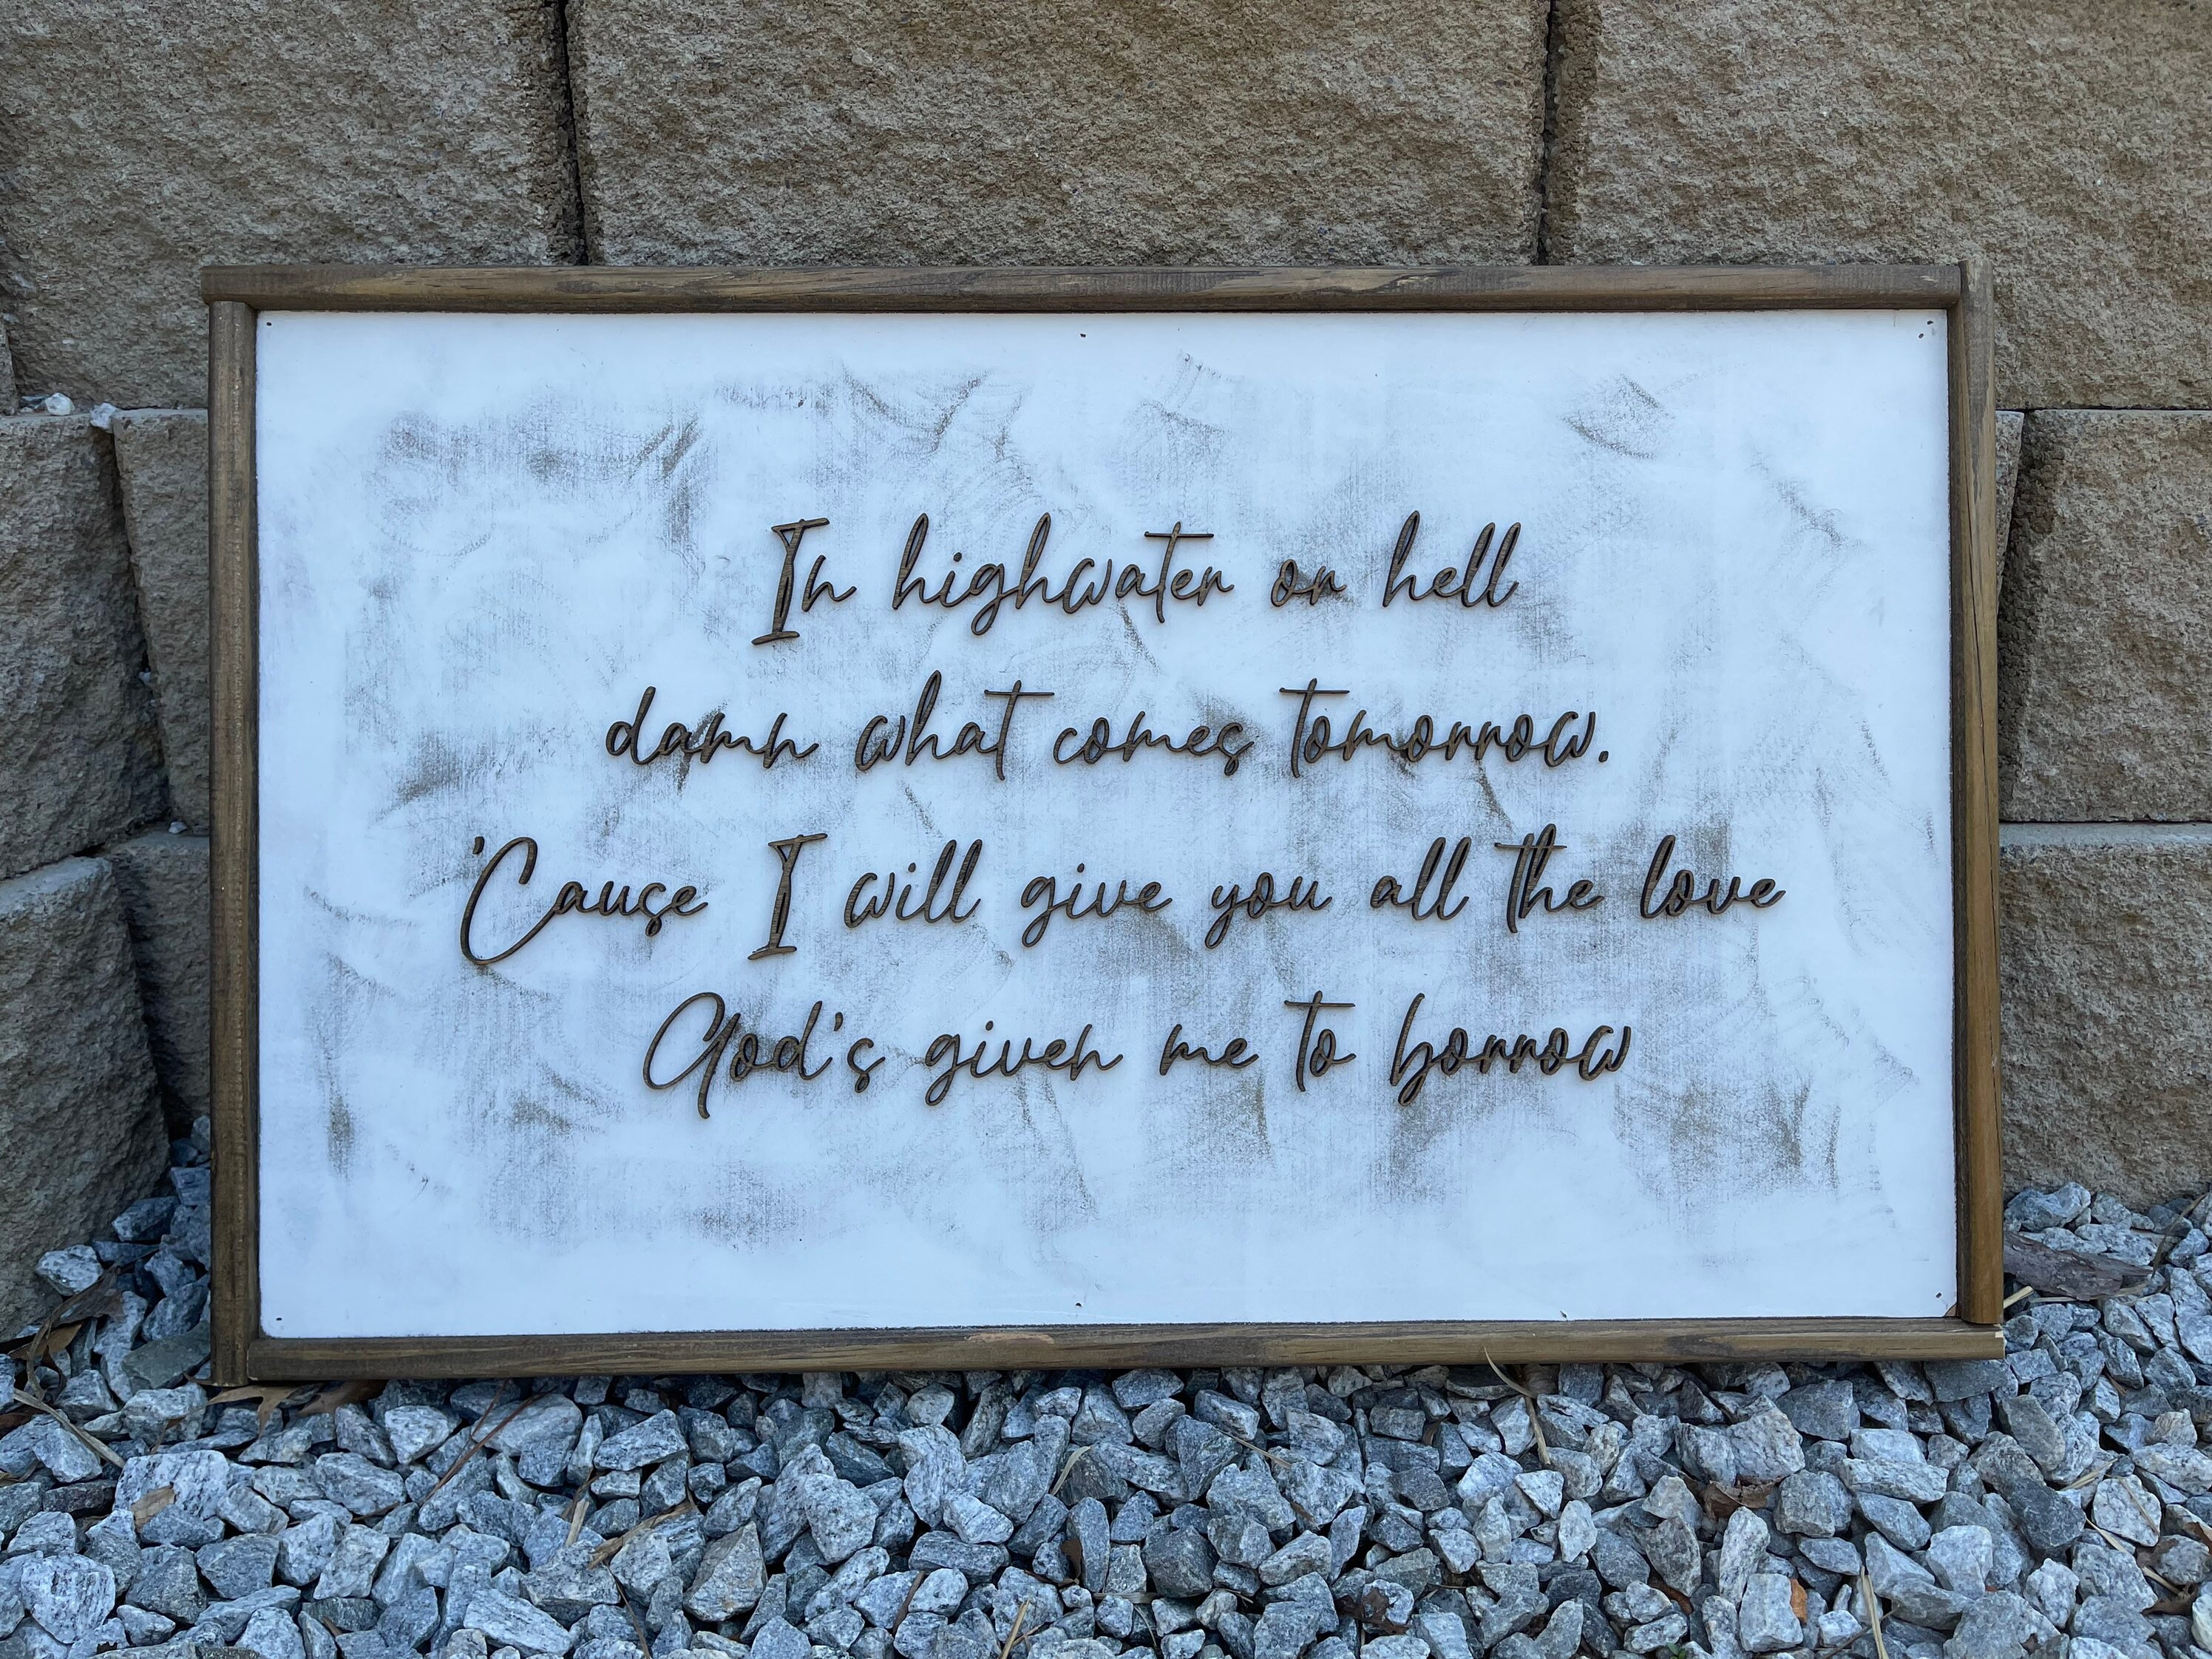 In highwater or hell
damn what comes tomorrow.
'Cause I will give you all the love
God's given me to borrow